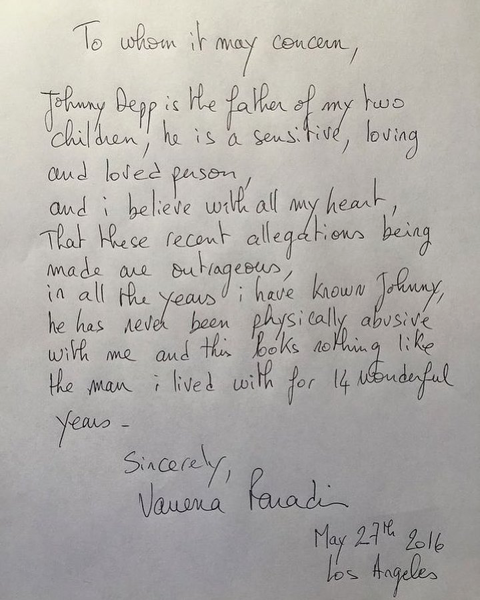 To whom it may concern,
Johnny Depp is the father of my two
children, he is a sensitive, loving
and loved person,
and i believe with all my heart,
That these recent allegations being
made are outrageous,
in all the years i have known Johnny,
he has never been physically abusive
with me and this looks nothing like
the man i lived with for 14 wonderful
years -
Sincerely,
Vanessa Paradis
May 27th 2016
Los Angeles